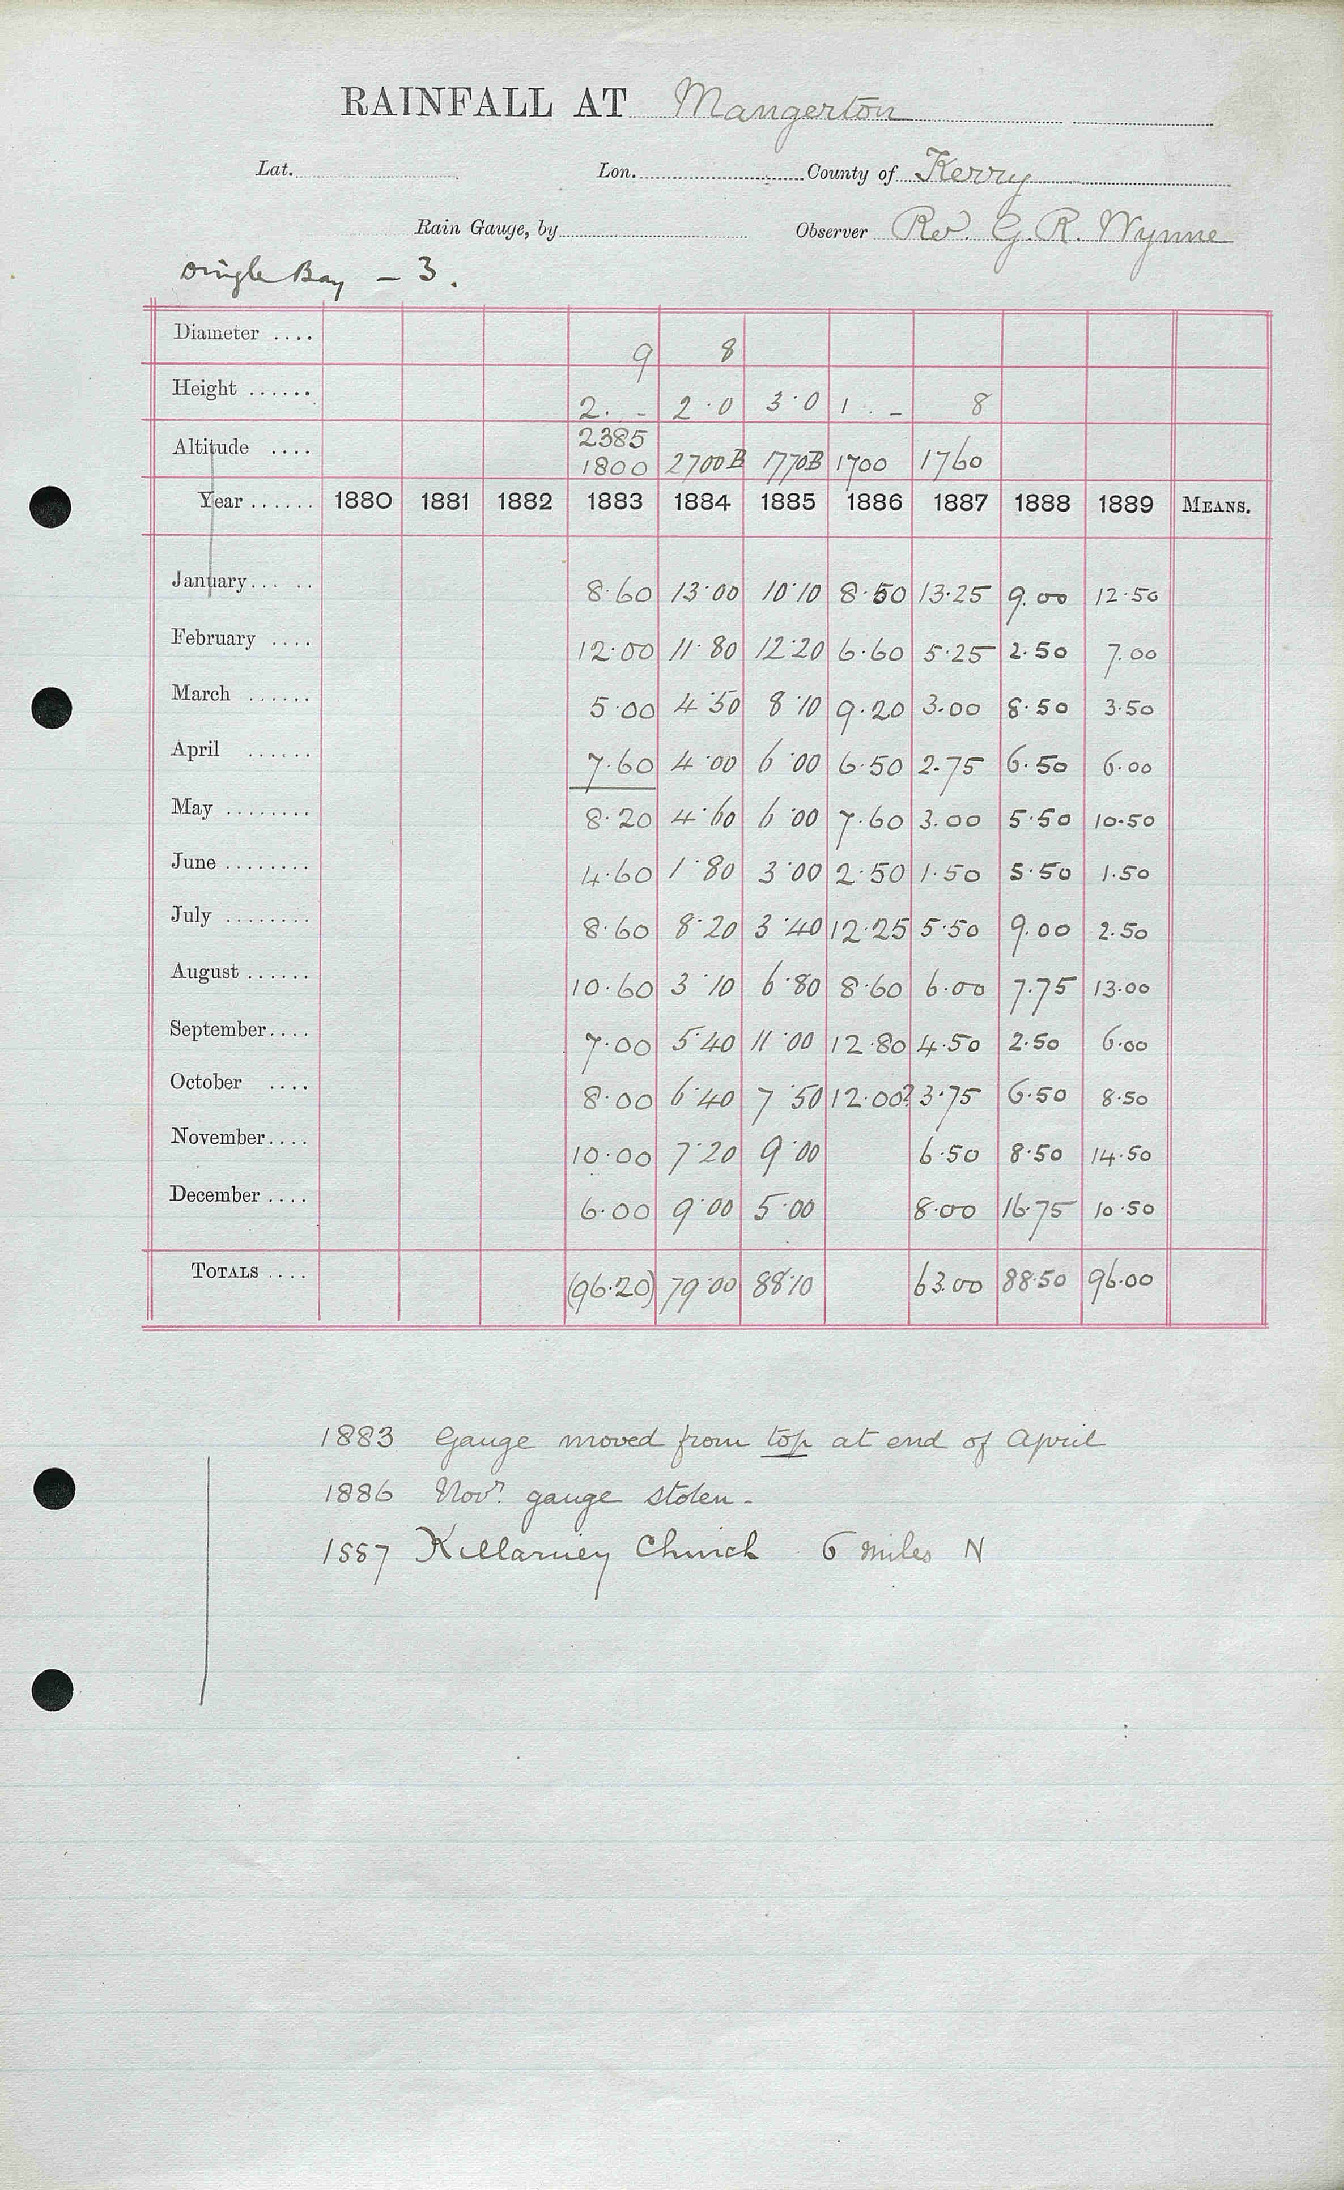 RAINFALL AT Mangerton
Lat. Lon. County of Kerry
Rain Gauge, by Observer Rev. G. R. Wynne
Dingle Bay – 3.
Diameter .... 9 8
Height ...... 2. - 2·0 3·0 1 . - 8
2385
Altitude .... 1800 2700B 1770B 1700 1760
Year ...... 1880 1881 1882 1883 1884 1885 1886 1887 1888 1889 MEANS.
January... .. 8·60 13·00 10·10 8·50 13·25 9.00 12·50
February .... 12·00 11·80 12·20 6·60 5·25 2·50 7.00
March ...... 5·00 4·50 8·10 9·20 3.00 8·50 3·50
April ...... 7·60 4·00 6·00 6·50 2·75 6·50 6·00
May ........ 8·20 4·60 6·00 7·60 3.00 5·50 10·50
June ........ 4·60 1·80 3·00 2·50 1·50 5·50 1·50
July ........ 8·60 8·20 3·40 12·25 5·50 9.00 2·50
August ...... 10·60 3·10 6·80 8·60 6·00 7·75 13·00
September.... 7·00 5·40 11·00 12·80 4·50 2·50 6·00
October .... 8·00 6·40 7·50 12·00? 3·75 6·50 8·50
November.... 10·00 7·20 9·00 6·50 8·50 14·50
December .... 6·00 9·00 5·00 8·00 16·75 10·50
TOTALS .... (96·20) 79·00 88·10 63.00 88·50 96·00
1883 Gauge moved from top at end of April
1886 Novr. gauge stolen -
1887 Killarney Church 6 miles N